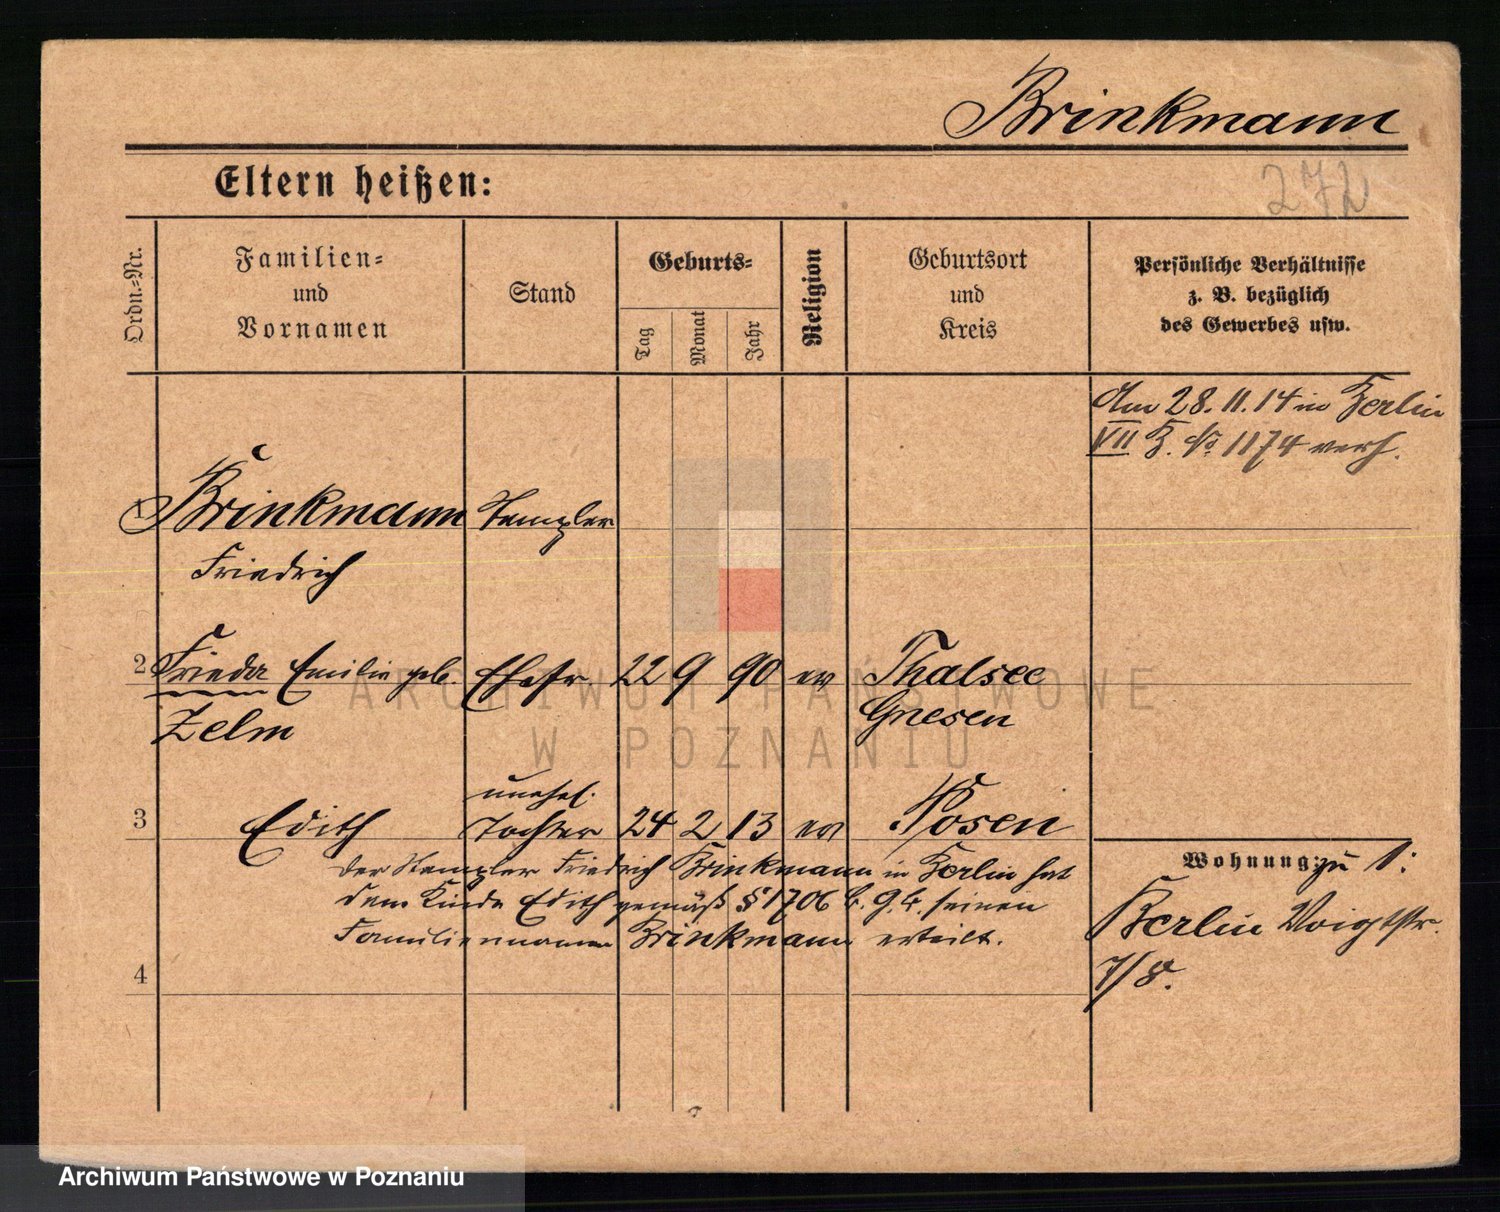 Brinkmann
272
Eltern heißen:
Ordn.-Nr.
Familien-
und
Vornamen
Stand
Geburts-
Tag
Monat
Jahr
Religion
Geburtsort
und
Kreis
Persönliche Verhältnisse
z. B. bezüglich
des Gewerbes usw.
Am 28.11.14 in Berlin
VII B. No 1174 verh.
1 Brinkmann
Friedrich
2 Frieda Emilie geb. Ehefr. 22 9 90 ev Thalsee
Zelm Gnesen
unehel.
3 Edith Tochter 24 2 13 ev Posen
Der Stempler Friedrich Brinkmann in Berlin hat
dem Kinde Edith gemäß § 1706 b. g. b. seinen
Familiennamen Brinkmann erteilt.
4
Wohnung: zu 1:
Berlin Voigtstr.
7/8.
ARCHIWUM PAŃSTWOWE
W POZNANIU
Archiwum Państwowe w Poznaniu